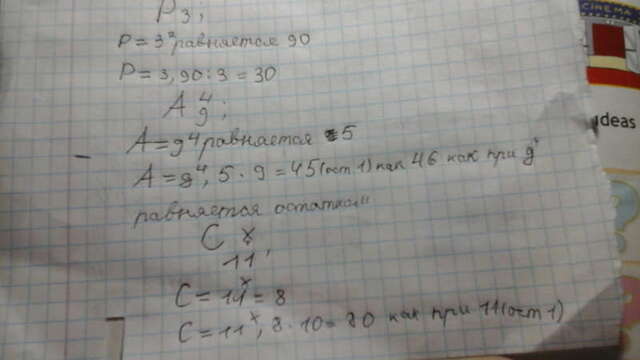 P 3;
P = 3² равняется 90
P = 3, 90 : 3 = 30
A 4
9;
A = 9⁴ равняется 5
A = 9⁴, 5 · 9 = 45 (ост 1) как 46 как при 9
равняется остатком
C x
11;
C = 11ˣ = 8
C = 11ˣ, 8 · 10 = 80 как при 11 (ост 1)
CINEMA
ideas